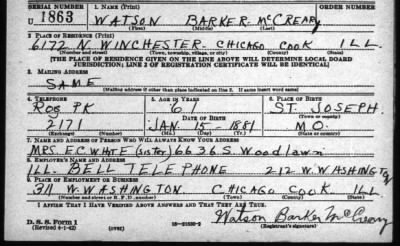 SERIAL NUMBER 1. NAME (Print) ORDER NUMBER
U 1863 WATSON BARKER McCREARY
(First) (Middle) (Last)
2. PLACE OF RESIDENCE (Print)
6172 N WINCHESTER. CHICAGO COOK ILL.
(Number and street) (Town, township, village, or city) (County) (State)
[THE PLACE OF RESIDENCE GIVEN ON THE LINE ABOVE WILL DETERMINE LOCAL BOARD
JURISDICTION; LINE 2 OF REGISTRATION CERTIFICATE WILL BE IDENTICAL]
3. MAILING ADDRESS
SAME
[Mailing address if other than place indicated on line 2. If same insert word same]
4. TELEPHONE 5. AGE IN YEARS 6. PLACE OF BIRTH
ROG PK 61 ST. JOSEPH
DATE OF BIRTH (Town or county)
2171 JAN. 15 - 1881 MO.
(Exchange) (Number) (Mo.) (Day) (Yr.) (State or country)
7. NAME AND ADDRESS OF PERSON WHO WILL ALWAYS KNOW YOUR ADDRESS
MRS. E.C. WHITE (sister) 6636. S. Woodlawn
8. EMPLOYER'S NAME AND ADDRESS
ILL. BELL TELEPHONE 212 W. WASHINGTON
9. PLACE OF EMPLOYMENT OR BUSINESS
311 W. WASHINGTON. CHICAGO COOK ILL
(Number and street or R. F. D. number) (Town) (County) (State)
I AFFIRM THAT I HAVE VERIFIED ABOVE ANSWERS AND THAT THEY ARE TRUE.
D. S. S. Form 1 Watson Barker McCreary
(Revised 4-1-42) (over) 16-21630-2 (Registrant's signature)